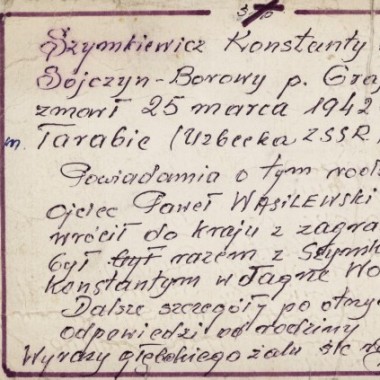 Szymkiewicz Konstanty
Sojczyn-Borowy p. Gra
zmarł 25 marca 1942
m. Tarabie (Uzbecka ZSSR.
Powiadamia o tym rodz
ojciec Paweł WASILEWSKI
wrócił do kraju z zagra
był był razem z Szymk
Konstantym w łagrze Wo
Dalsze szczegóły po otrzy
odpowiedzi od rodziny
Wyrazy głębokiego żalu